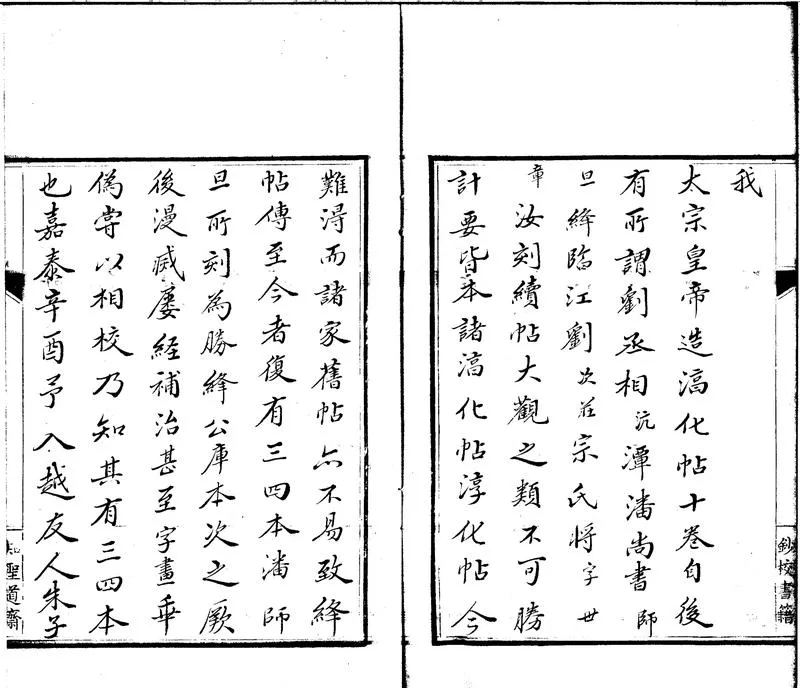 我
太宗皇帝造淳化帖十卷自後
有所謂劉丞相沆潭潘尚書師
旦絳臨江劉次莊宗氏將字世
章汝刻續帖大觀之類不可勝
計要皆本諸淳化帖淳化帖今
難淂而諸家舊帖亦不易致絳
帖傳至今者復有三四本潘師
旦所刻為勝絳公庫本次之厥
後漫滅屢經補治甚至字畫乖
偽嘗以相校乃知其有三四本
也嘉泰辛酉予入越友人朱子
鈔校書籍
知聖道齋